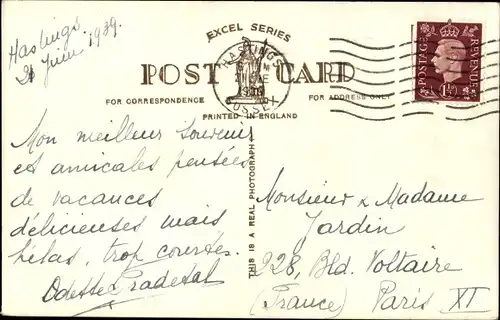 Hastings.
21 Juin 1939.
EXCEL SERIES
HASTINGS
1939
SUSSEX
POST CARD
FOR CORRESPONDENCE
FOR ADDRESS ONLY
PRINTED IN ENGLAND
POSTAGE
REVENUE
1½
THIS IS A REAL PHOTOGRAPH
Mon meilleur souvenir
et amicales pensées
de vacances
délicieuses mais
hélas, trop courtes.
Odette Pradetal
Monsieur & Madame
Jardin
228, Bld. Voltaire
(France) Paris XI